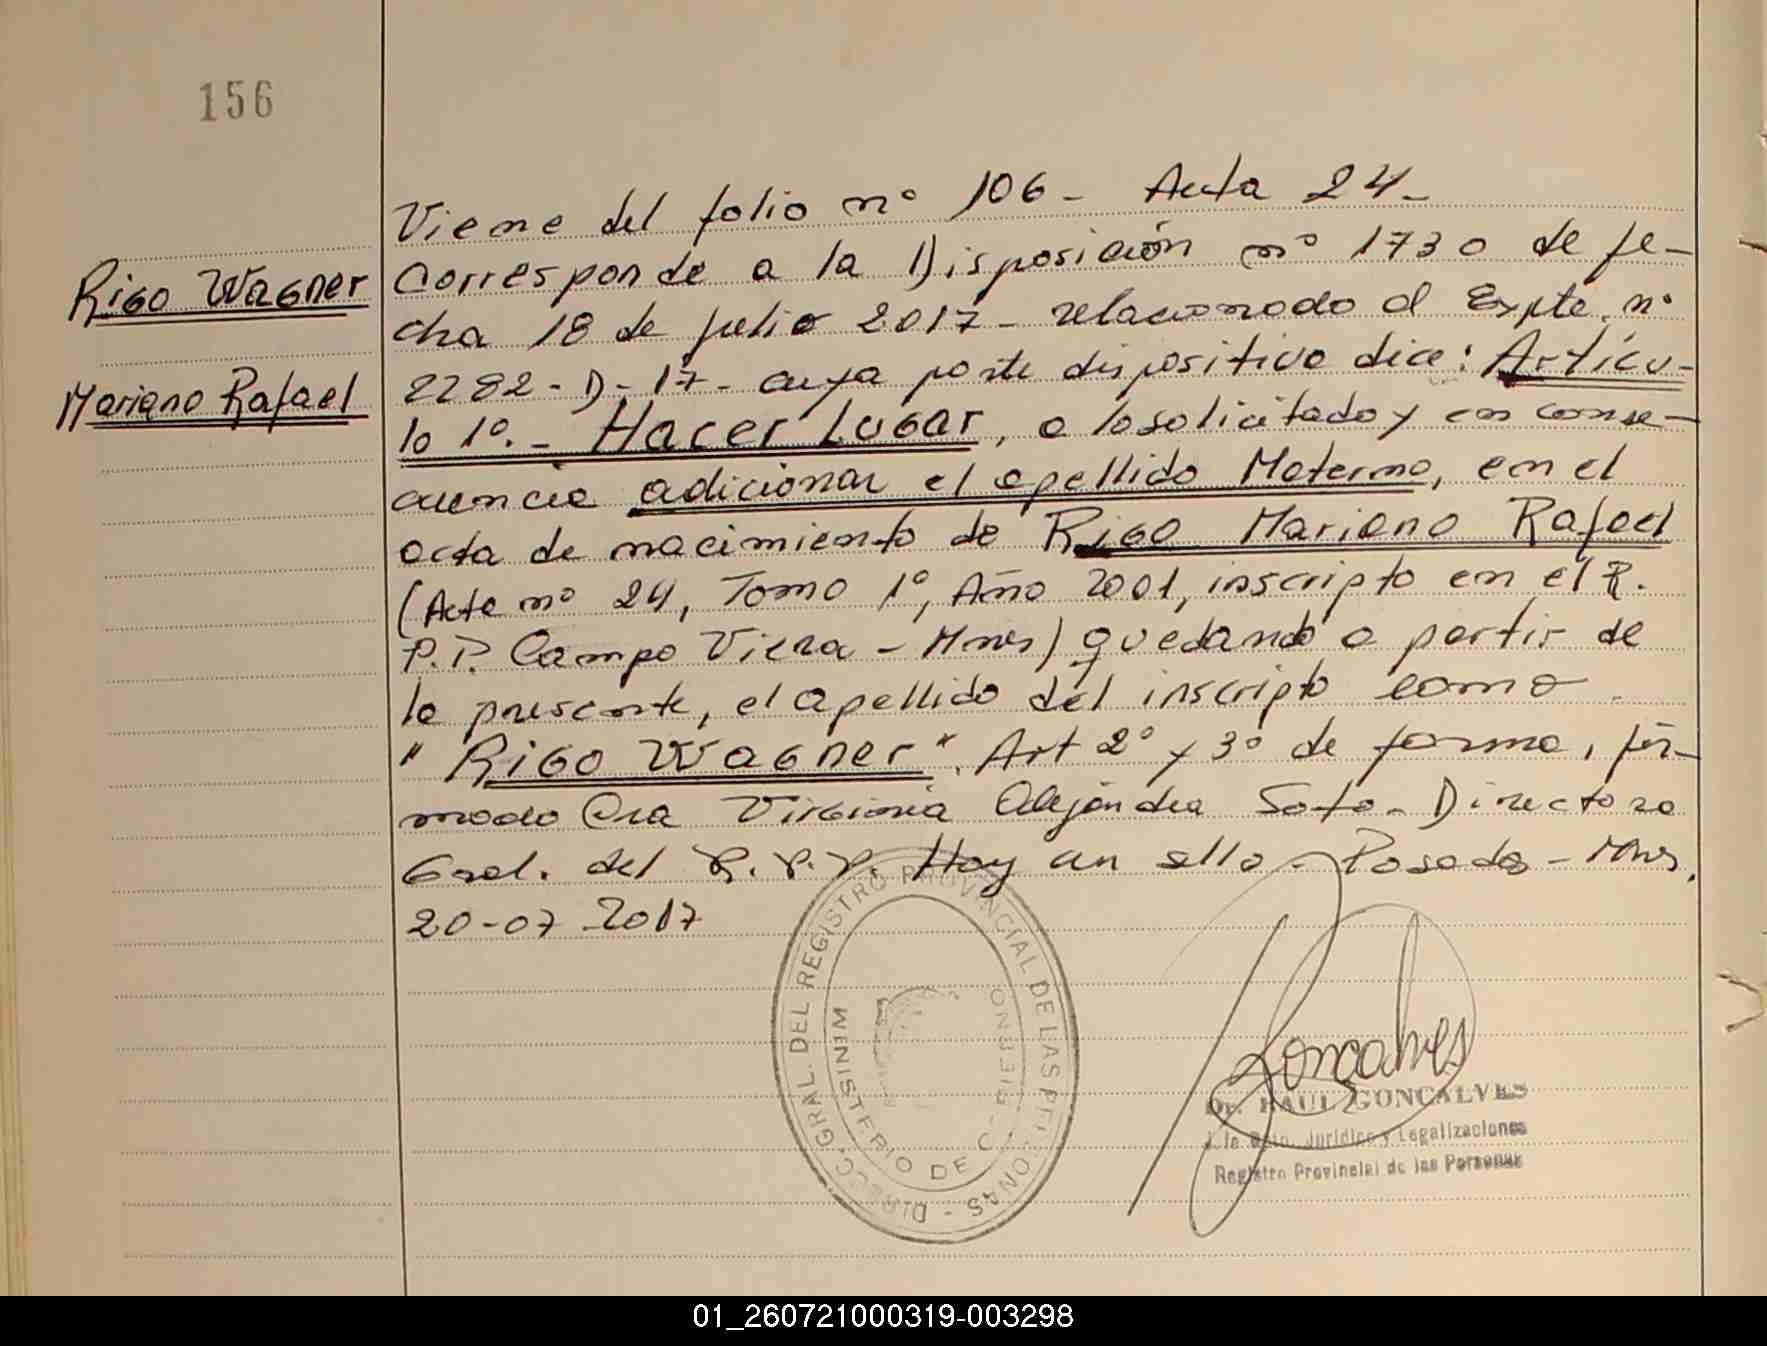 156
Rigo Wagner
Mariano Rafael
Viene del folio nº 106 - Acta 24 -
Corresponde a la Disposición nº 1730 de fe-
cha 18 de julio 2017 - relacionado al Expte. nº
2282 - D - 17 - cuya parte dispositiva dice: Artícu-
lo 1º. - Hacer Lugar, a lo solicitado y en conse-
cuencia adicionar el apellido Materno, en el
acta de nacimiento de Rigo Mariano Rafael
(Acta nº 24, Tomo 1º, Año 2001, inscripto en el R.
P.P. Campo Viera - Mnes) quedando a partir de
la presente, el apellido del inscripto como
"Rigo Wagner". Art 2º y 3º de forma, fir-
mado Dra Virginia Alejandra Soto - Directora
Gral. del R.P.P. Hay un sello - Posadas - Mnes.
20-07-2017
DIRECC. GRAL. DEL REGISTRO PROVINCIAL DE LAS PERSONAS -
MINISTERIO DE GOBIERNO
Goncalves
Dr. RAUL GONCALVES
Jurídico y Legalizaciones
Registro Provincial de las Personas
01_260721000319-003298